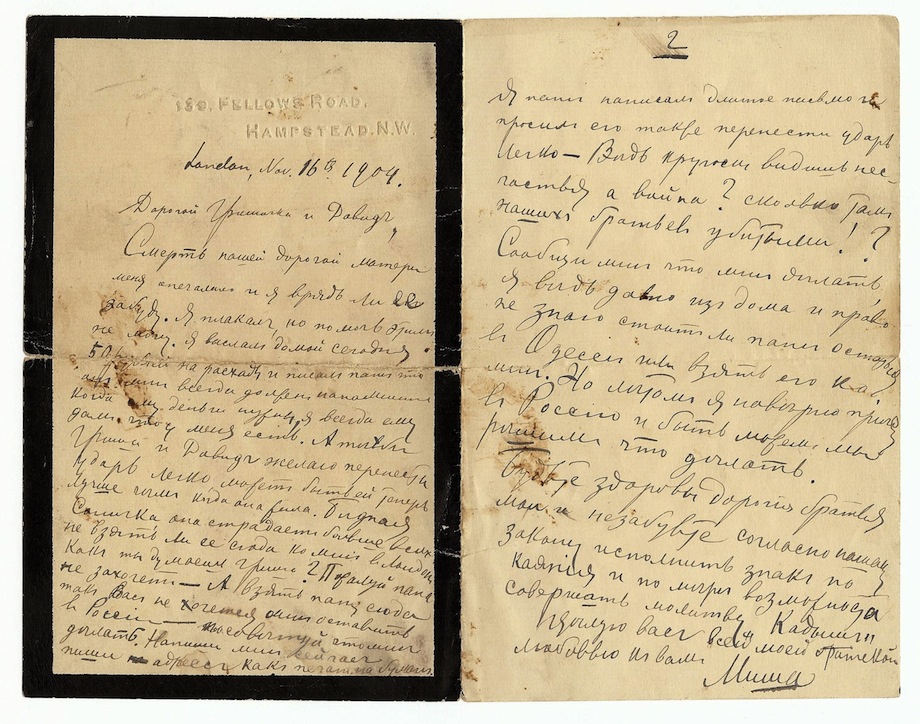 189, FELLOWS ROAD,
HAMPSTEAD. N.W.
London, Nov. 16th 1904.
Дорогой Гришичка и Давидъ,
Смерть нашей дорогой матери
меня опечалило и я врядъ ли ее
забуду. Я плакалъ, но помочь этимъ
не могу. Я выслалъ домой сегодня
50 рублей на расходы и писалъ папѣ что
онъ мнѣ всегда долженъ напоминать
когда ему деньги нужны, я всегда ему
дамъ что у меня есть. А тебѣ
Гриша и Давидъ желаю перенести
ударъ легко, можетъ быть ей теперь
лучше чѣмъ когда она жила. Бѣдная
Соничка она страдаетъ больше всѣхъ
не взять ли ее сюда ко мнѣ въ Лондонъ
Какъ ты думаешь Гриша? Пожалуй папа
не захочетъ — А взять папу сюда
такъ Васъ не хочется оставить
въ Россіи — посовѣтуй что мнѣ
дѣлать. Напиши мнѣ сейчасъ
пиши адрессъ какъ печат. на бумагѣ.
2
Я папѣ написалъ длинное письмо и
просилъ его также перенести ударъ
легко — Вѣдь кругомъ видишь нес-
частья а война? сколько тамъ
нашихъ братьевъ убитыми!?
Сообщи мнѣ что мнѣ дѣлать
я вѣдь давно изъ дома и право
не знаю стоитъ ли папѣ остаться
въ Одессѣ или взять его ка
мнѣ. Но лѣтомъ я навѣрно пріѣду
въ Россію и быть можетъ мы
рѣшимъ что дѣлать.
Будьте здоровы дорогіе братья
мои и незабудьте согласно нашему
закону исполнить знакъ по
и по мѣрѣ возможности
совершать молитву Кадышъ
Цѣлую васъ всей моей братской
любовью къ вамъ
Миша